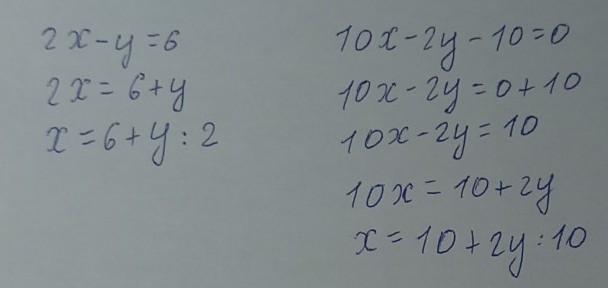 2x-y=6
2x=6+y
x=6+y:2
10x-2y-10=0
10x-2y=0+10
10x-2y=10
10x=10+2y
x=10+2y:10